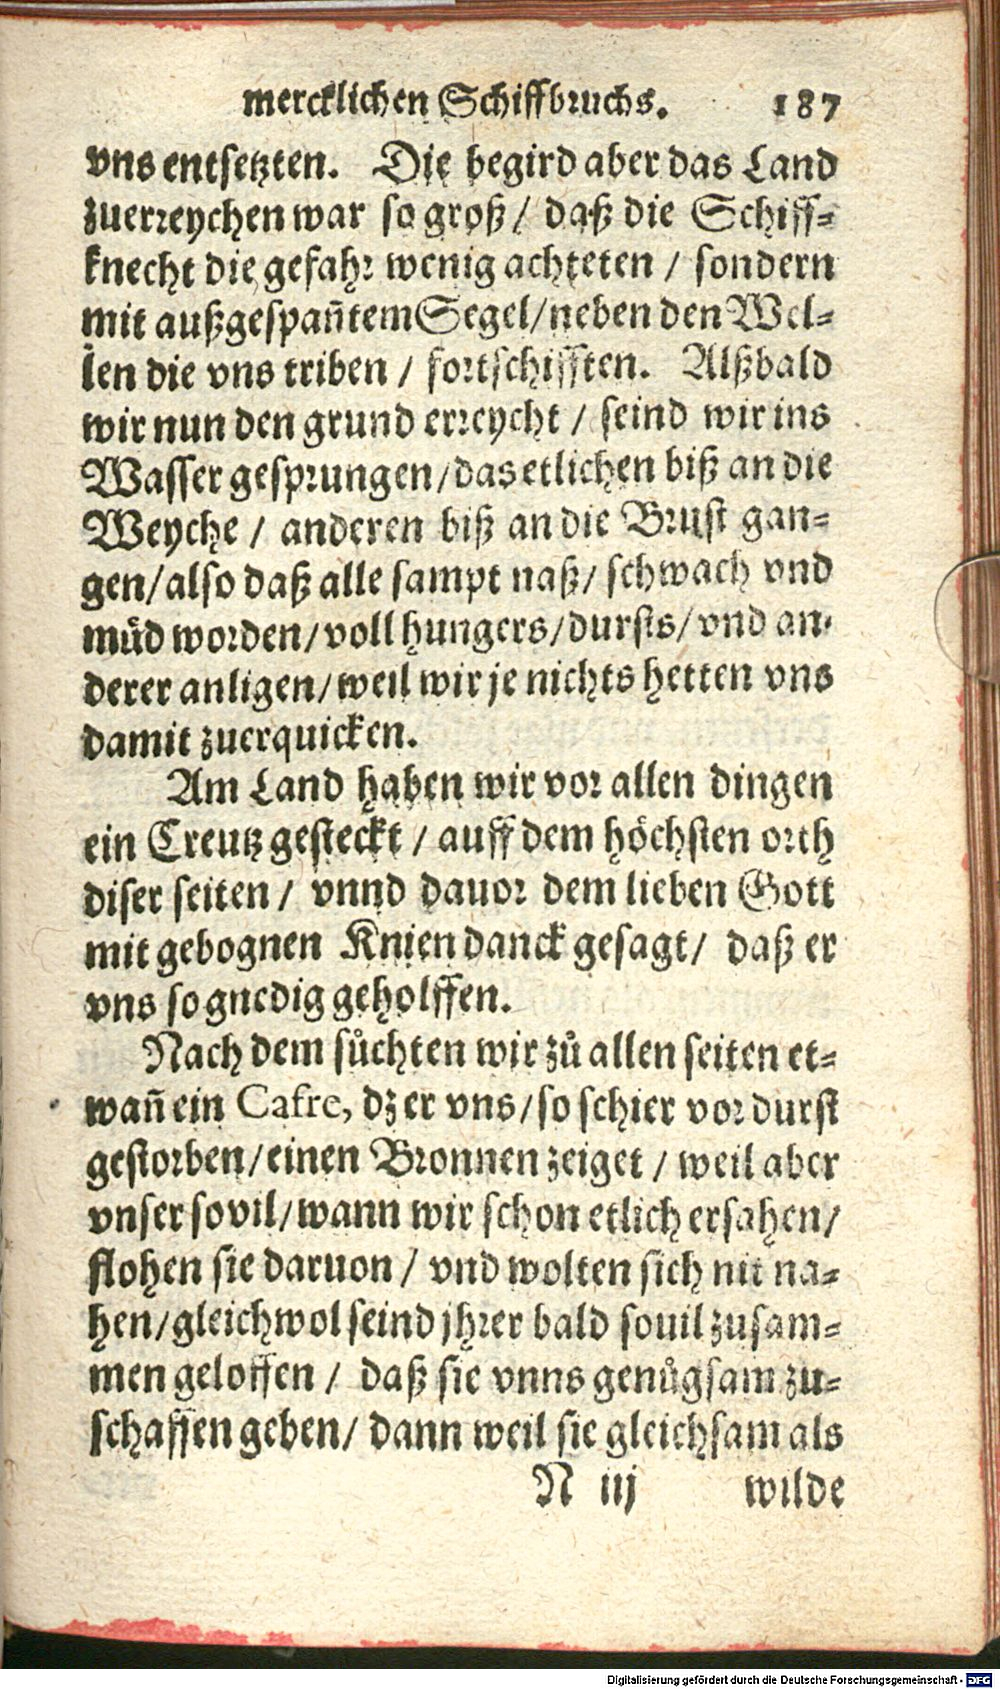 mercklichen Schiffbruchs. 187
vns entsetzten. Die begird aber das Land
zuerreychen war so groß / daß die Schiff-
knecht die gefahr wenig achteten / sondern
mit außgespañtem Segel / neben den Wel-
len die vns triben / fortschifften. Alßbald
wir nun den grund erreycht / seind wir ins
Wasser gesprungen / das etlichen biß an die
Weyche / anderen biß an die Brust gan-
gen / also daß alle sampt naß / schwach vnd
müd worden / voll hungers / dursts / vnd an-
derer anligen / weil wir je nichts hetten vns
damit zuerquicken.
Am Land haben wir vor allen dingen
ein Creutz gesteckt / auff dem höchsten orth
diser seiten / vnnd dauor dem lieben Gott
mit gebognen Knien danck gesagt / daß er
vns so gnedig geholffen.
Nach dem sůchten wir zů allen seiten et-
wañ ein Cafre, dz er vns / so schier vor durst
gestorben / einen Bronnen zeiget / weil aber
vnser sovil / wann wir schon etlich ersahen /
flohen sie daruon / vnd wolten sich nit na-
hen / gleichwol seind jhrer bald souil zusam-
men geloffen / daß sie vnns genůgsam zu-
schaffen geben / dann weil sie gleichsam als
N iij wilde
Digitalisierung gefördert durch die Deutsche Forschungsgemeinschaft - DFG